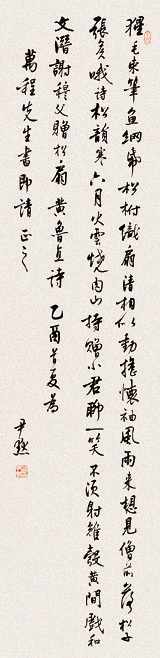 猩毛束筆魚網紙松柎織扇清相似動搖懷袖風雨來想見僧前落松子
張矦哦詩松韻寒六月火雲燒肉山持贈小君聊一笑不須射雉彀黃間戲和
文潛謝穆父贈松扇黃魯直詩乙酉首夏為
萬程先生書即請正之
尹默